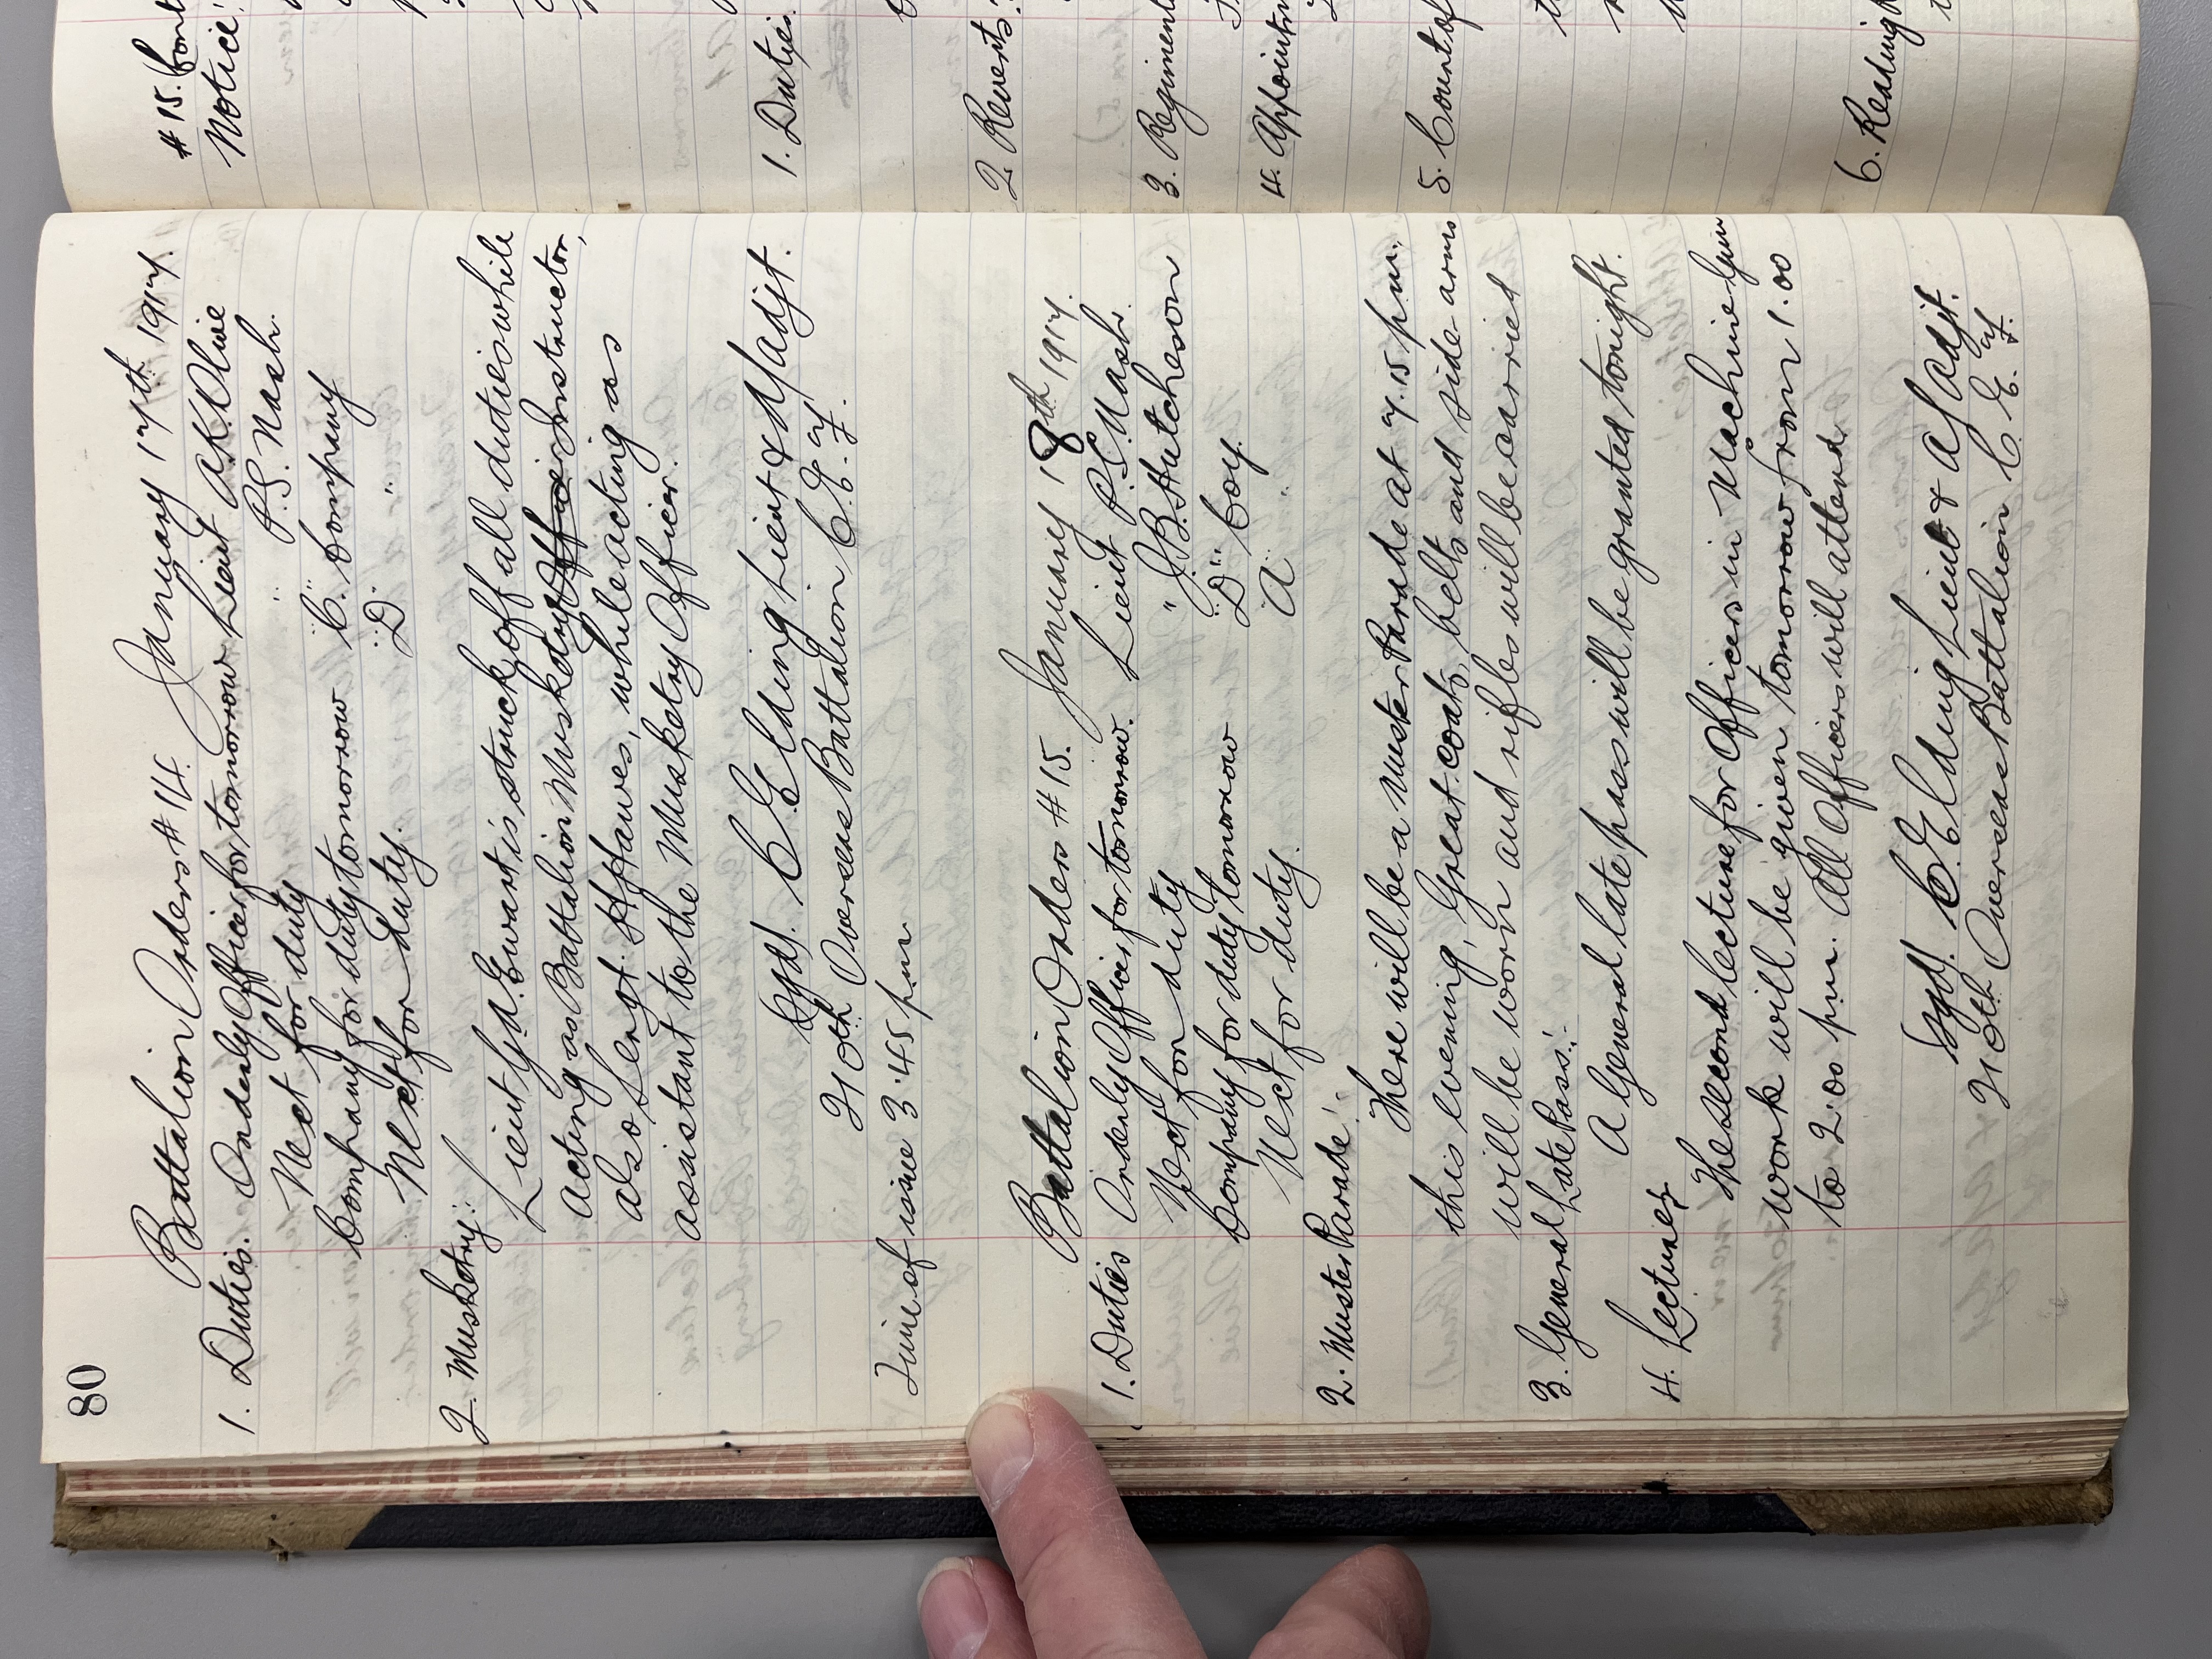 80
Battalion Orders #14. January 17th 1917.
1. Duties. Orderly Officer for tomorrow Lieut A.K. Olive
Next for duty " P.S. Nash.
Company for duty tomorrow "C" Company
Next for duty. "D" "
2. Musketry:
Lieut G.A. Ewart is struck off all duties while
acting as Battalion Musketry Officer Instructor,
also Sergt. Hawes, while acting as
assistant to the Musketry Officer.
Sgd. C E Elding Lieut & A/adjt.
210th Overseas Battalion C.E.F.
Time of issue 3.45 pm
Battalion Orders #15. January 18th 1917.
1. Duties Orderly Officer for tomorrow. Lieut P.S. Nash.
Next for duty " J.B. Hutcheson
Company for duty tomorrow "D" Coy.
Next for duty. "A" "
2. Muster Parade:
There will be a Muster Parade at 7.15 pm.
this evening, Great coats, belts and side-arms
will be worn and rifles will be carried
3. General Late Pass:
A General late pass will be granted tonight.
4. Lectures
The second lecture for Officers in Machine Gun
work will be given tomorrow from 1.00
to 2.00 pm. All Officers will attend.
Sgd. C. E Elding Lieut & A/adjt.
210th Overseas Battalion C.E.F.
#15. Cont
Notice:
1. Duties.
2. Reverts:
3. Regiment
4. Appointm
5. Count of
6. Reading